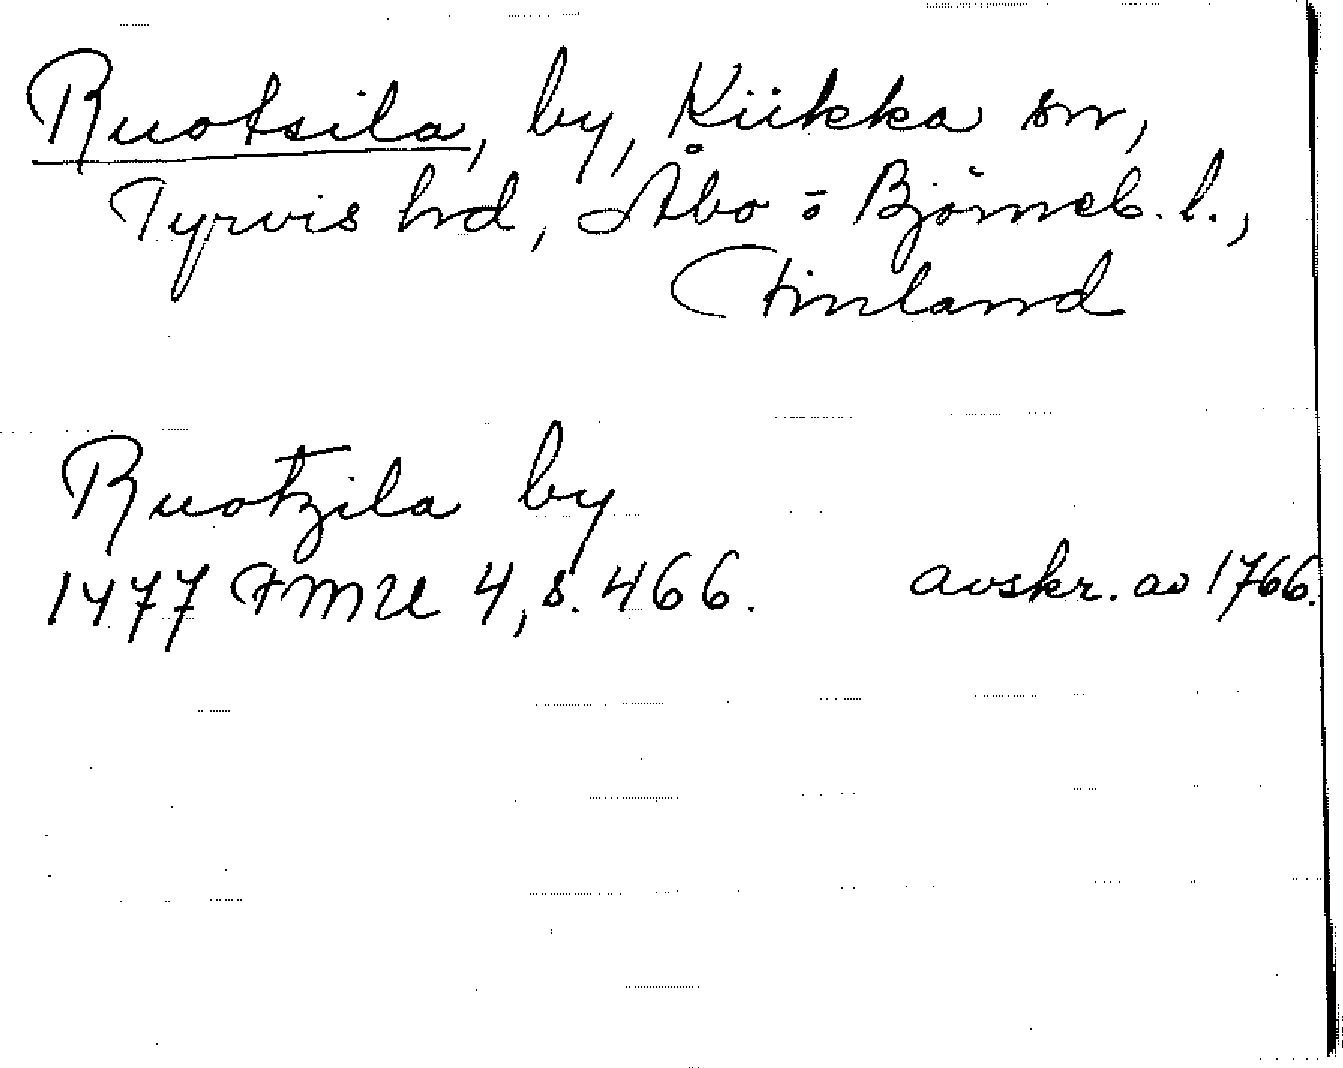 Ruotsila, by, Kiikka sn,
Tyrvis hd, Åbo o Björneb. l.,
Finland
Ruotzila by
1477 FMU 4, s. 466. avskr. av 1766.